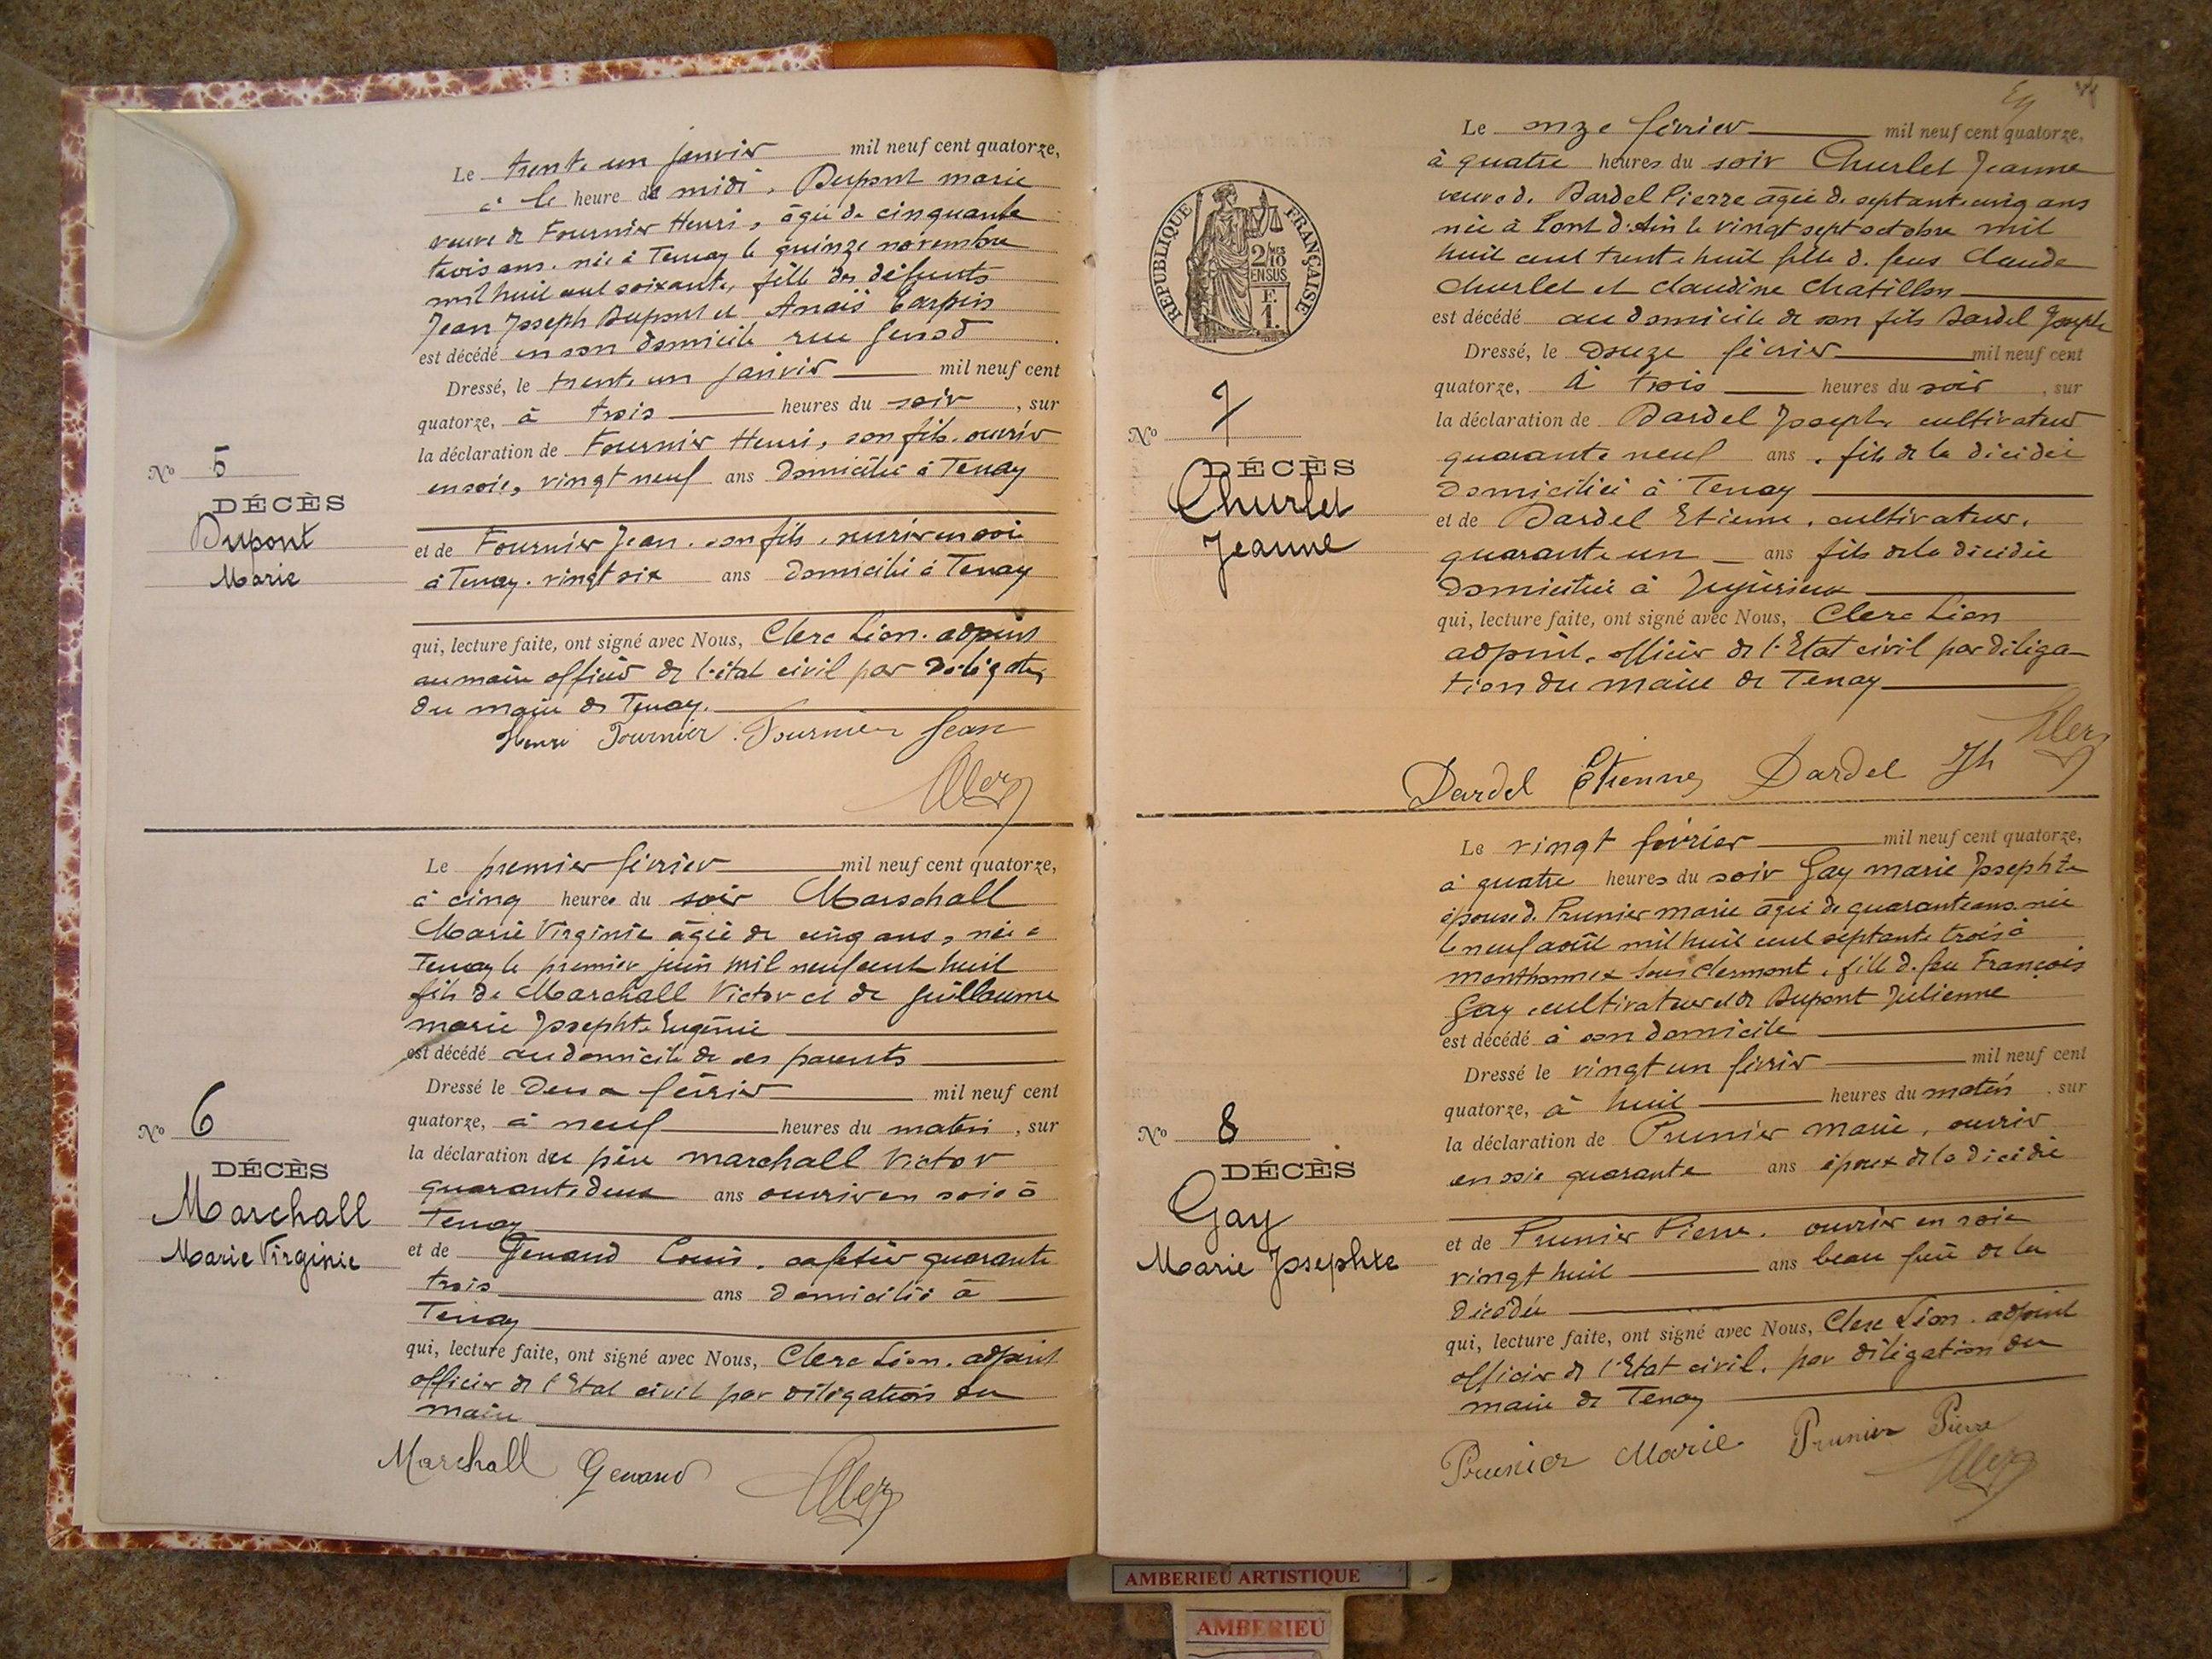 Le trente un janvier mil neuf cent quatorze,
à le heure de midi, Dupont marie
veuve de Fournier Henri, âgée de cinquante
trois ans. née à Tenay le quinze novembre
mil huit cent soixante, fille des défunts
Jean Joseph Dupont et Anaïs Carpin
est décédé en son domicile rue Genod
Dressé, le trente un janvier mil neuf cent
quatorze, à trois heures du soir, sur
la déclaration de Fournier Henri, son fils. ouvrier
en soie, vingt neuf ans domicilié à Tenay
No 5
DÉCÈS
Dupont
Marie
et de Fournier Jean. son fils, ouvrier en soie
à Tenay. vingt six ans domicilié à Tenay
qui, lecture faite, ont signé avec Nous, Clerc Léon. adjoint
au maire officier de l'état civil par délégation
du maire de Tenay.
Henri Fournier. Fournier Jean
Clerc
Le premier février mil neuf cent quatorze,
à cinq heures du soir Marschall
Marie Virginie âgée de cinq ans, née à
Tenay le premier juin mil neuf cent huit
fils de Marchall Victor et de Guillaume
marie Josephte Eugénie
est décédé au domicile de ses parents
Dressé le deux février mil neuf cent
quatorze, à neuf heures du matin, sur
la déclaration du père marchall Victor
quarante deux ans ouvrier en soie à
Tenay
No 6
DÉCÈS
Marchall
Marie Virginie
et de Genand Louis. cafetier quarante
trois ans domicilié à
Tenay
qui, lecture faite, ont signé avec Nous, Clerc Léon. adjoint
officier de l'Etat civil par délégation du
maire
Marchall Genand Clerc
Le onze février mil neuf cent quatorze,
à quatre heures du soir Churlet Jeanne
veuve d. Dardel Pierre âgée de septante cinq ans
née à Pont d'Ain le vingt sept octobre mil
huit cent trente huit fille d. feus Claude
Churlet et Claudine Chatillon
est décédé au domicile de son fils Dardel Joseph
Dressé, le douze février mil neuf cent
quatorze, à trois heures du soir, sur
la déclaration de Dardel Joseph cultivateur
quarante neuf ans, fils de la décédée
domicilié à Tenay
et de Dardel Etienne, cultivateur,
quarante un ans fils de la décédée
domicilié à Jujurieux
qui, lecture faite, ont signé avec Nous, Clerc Léon
adjoint, officier de l'Etat civil par déléga-
tion du maire de Tenay
Clerc
Dardel Etienne Dardel Jh
REPUBLIQUE FRANÇAISE
2/10 EN SUS
F. 1.
No 7
DÉCÈS
Churlet
Jeanne
Le vingt février mil neuf cent quatorze,
à quatre heures du soir Gay marie Josephte
épouse d. Prunier marie âgée de quarante ans. née
le neuf août mil huit cent septante trois à
Menthonnex sous Clermont, fille d. feu François
Gay, cultivateur et de Dupont Julienne
est décédé à son domicile
Dressé le vingt un février mil neuf cent
quatorze, à huit heures du matin, sur
la déclaration de Prunier marie, ouvrier
en soie quarante ans époux de la décédée
No 8
DÉCÈS
Gay
Marie Josephte
et de Prunier Pierre, ouvrier en soie
vingt huit ans beau frère de la
décédée
qui, lecture faite, ont signé avec Nous, Clerc Léon. adjoint
officier de l'Etat civil, par délégation du
maire de Tenay
Prunier Marie Prunier Pierre
Clerc
AMBERIEU ARTISTIQUE
AMBERIEU